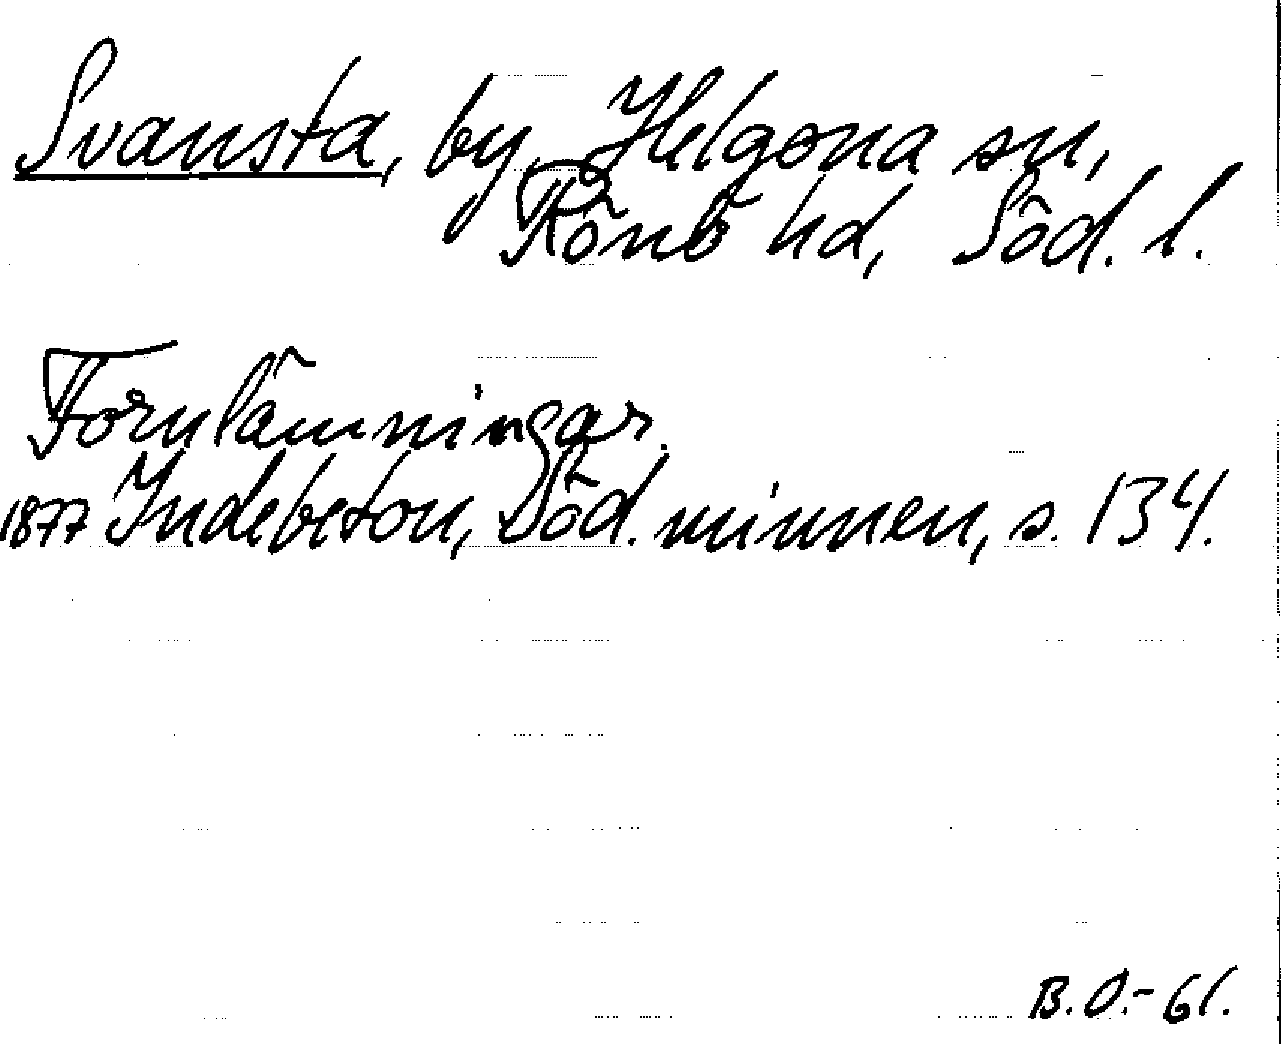 Svansta, by, Helgona sn,
Rönö hd, Söd. l.
Fornlämningar.
1877 Indebetou, Söd. minnen, s. 134.
B.O.-61.